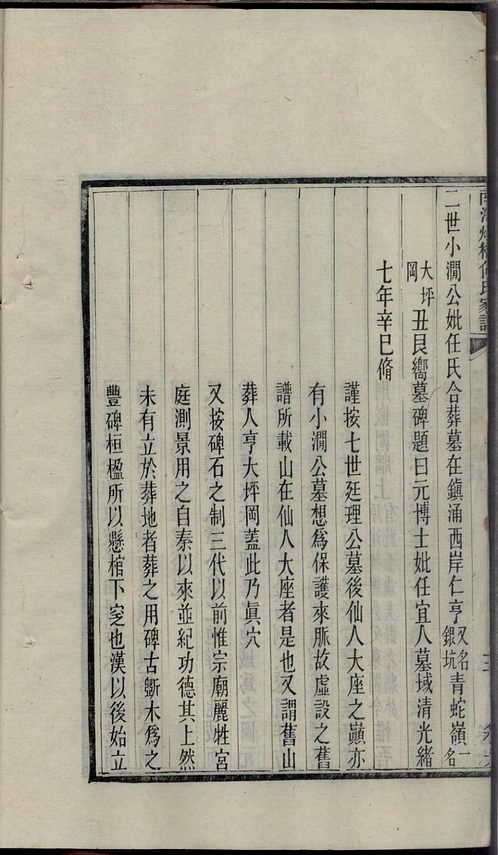 南海煙橋何氏家譜
二世小澗公妣任氏合葬墓在鎮涌西岸仁亨又名銀坑青蛇嶺一名
大坪岡丑艮嚮墓碑題曰元博士妣任宜人墓域清光緒
七年辛巳脩
謹按七世廷理公墓後仙人大座之巔亦
有小澗公墓想爲保護來脈故虛設之舊
譜所載山在仙人大座者是也又謂舊山
葬人亨大坪岡蓋此乃眞穴
又按碑石之制三代以前惟宗廟麗牲宮
庭測景用之自秦以來並紀功德其上然
未有立於葬地者葬之用碑古斲木爲之
豐碑桓楹所以懸棺下窆也漢以後始立